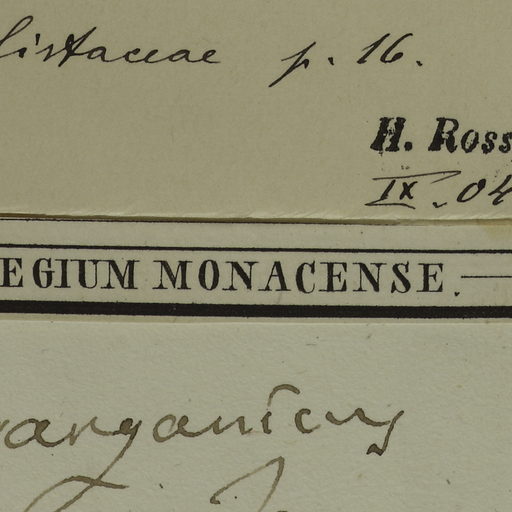 listaceae p. 16.
H. Ross
IX. 04
EGIUM MONACENSE.
arganicus